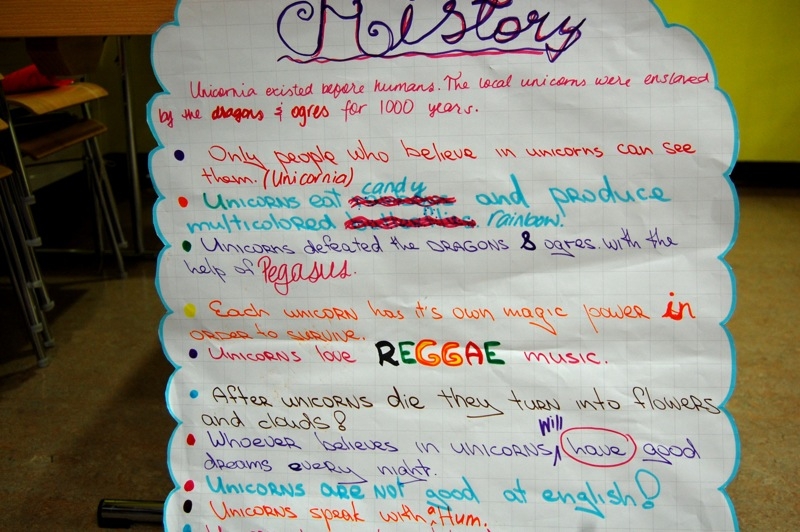 History
Unicornia existed before humans. The local unicorns were enslaved
by the dragons & ogres for 1000 years.
Only people who believe in unicorns can see
them. (Unicornia)
Unicorns eat candy and produce
multicolored rainbow.
Unicorns defeated the DRAGONS & ogres with the
help of Pegasus.
Each unicorn has it's own magic power in
order to survive.
Unicorns love REGGAE music.
After unicorns die they turn into flowers
and clouds!
Whoever believes in unicorns will have good
dreams every night.
Unicorns are not good at english!
Unicorns speak with a Hum.